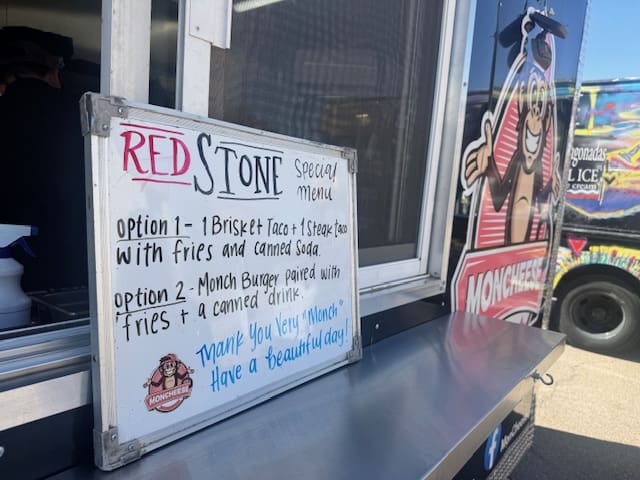 RED STONE special menu
option 1 - 1 Brisket Taco + 1 Steak taco
with fries and canned soda.
option 2 - Monch Burger paired with
fries + a canned drink.
Thank You Very "Monch"
Have a beautiful day!
MONCHEESE
MONCHEESE
ngonadas
L ICE
cream
f